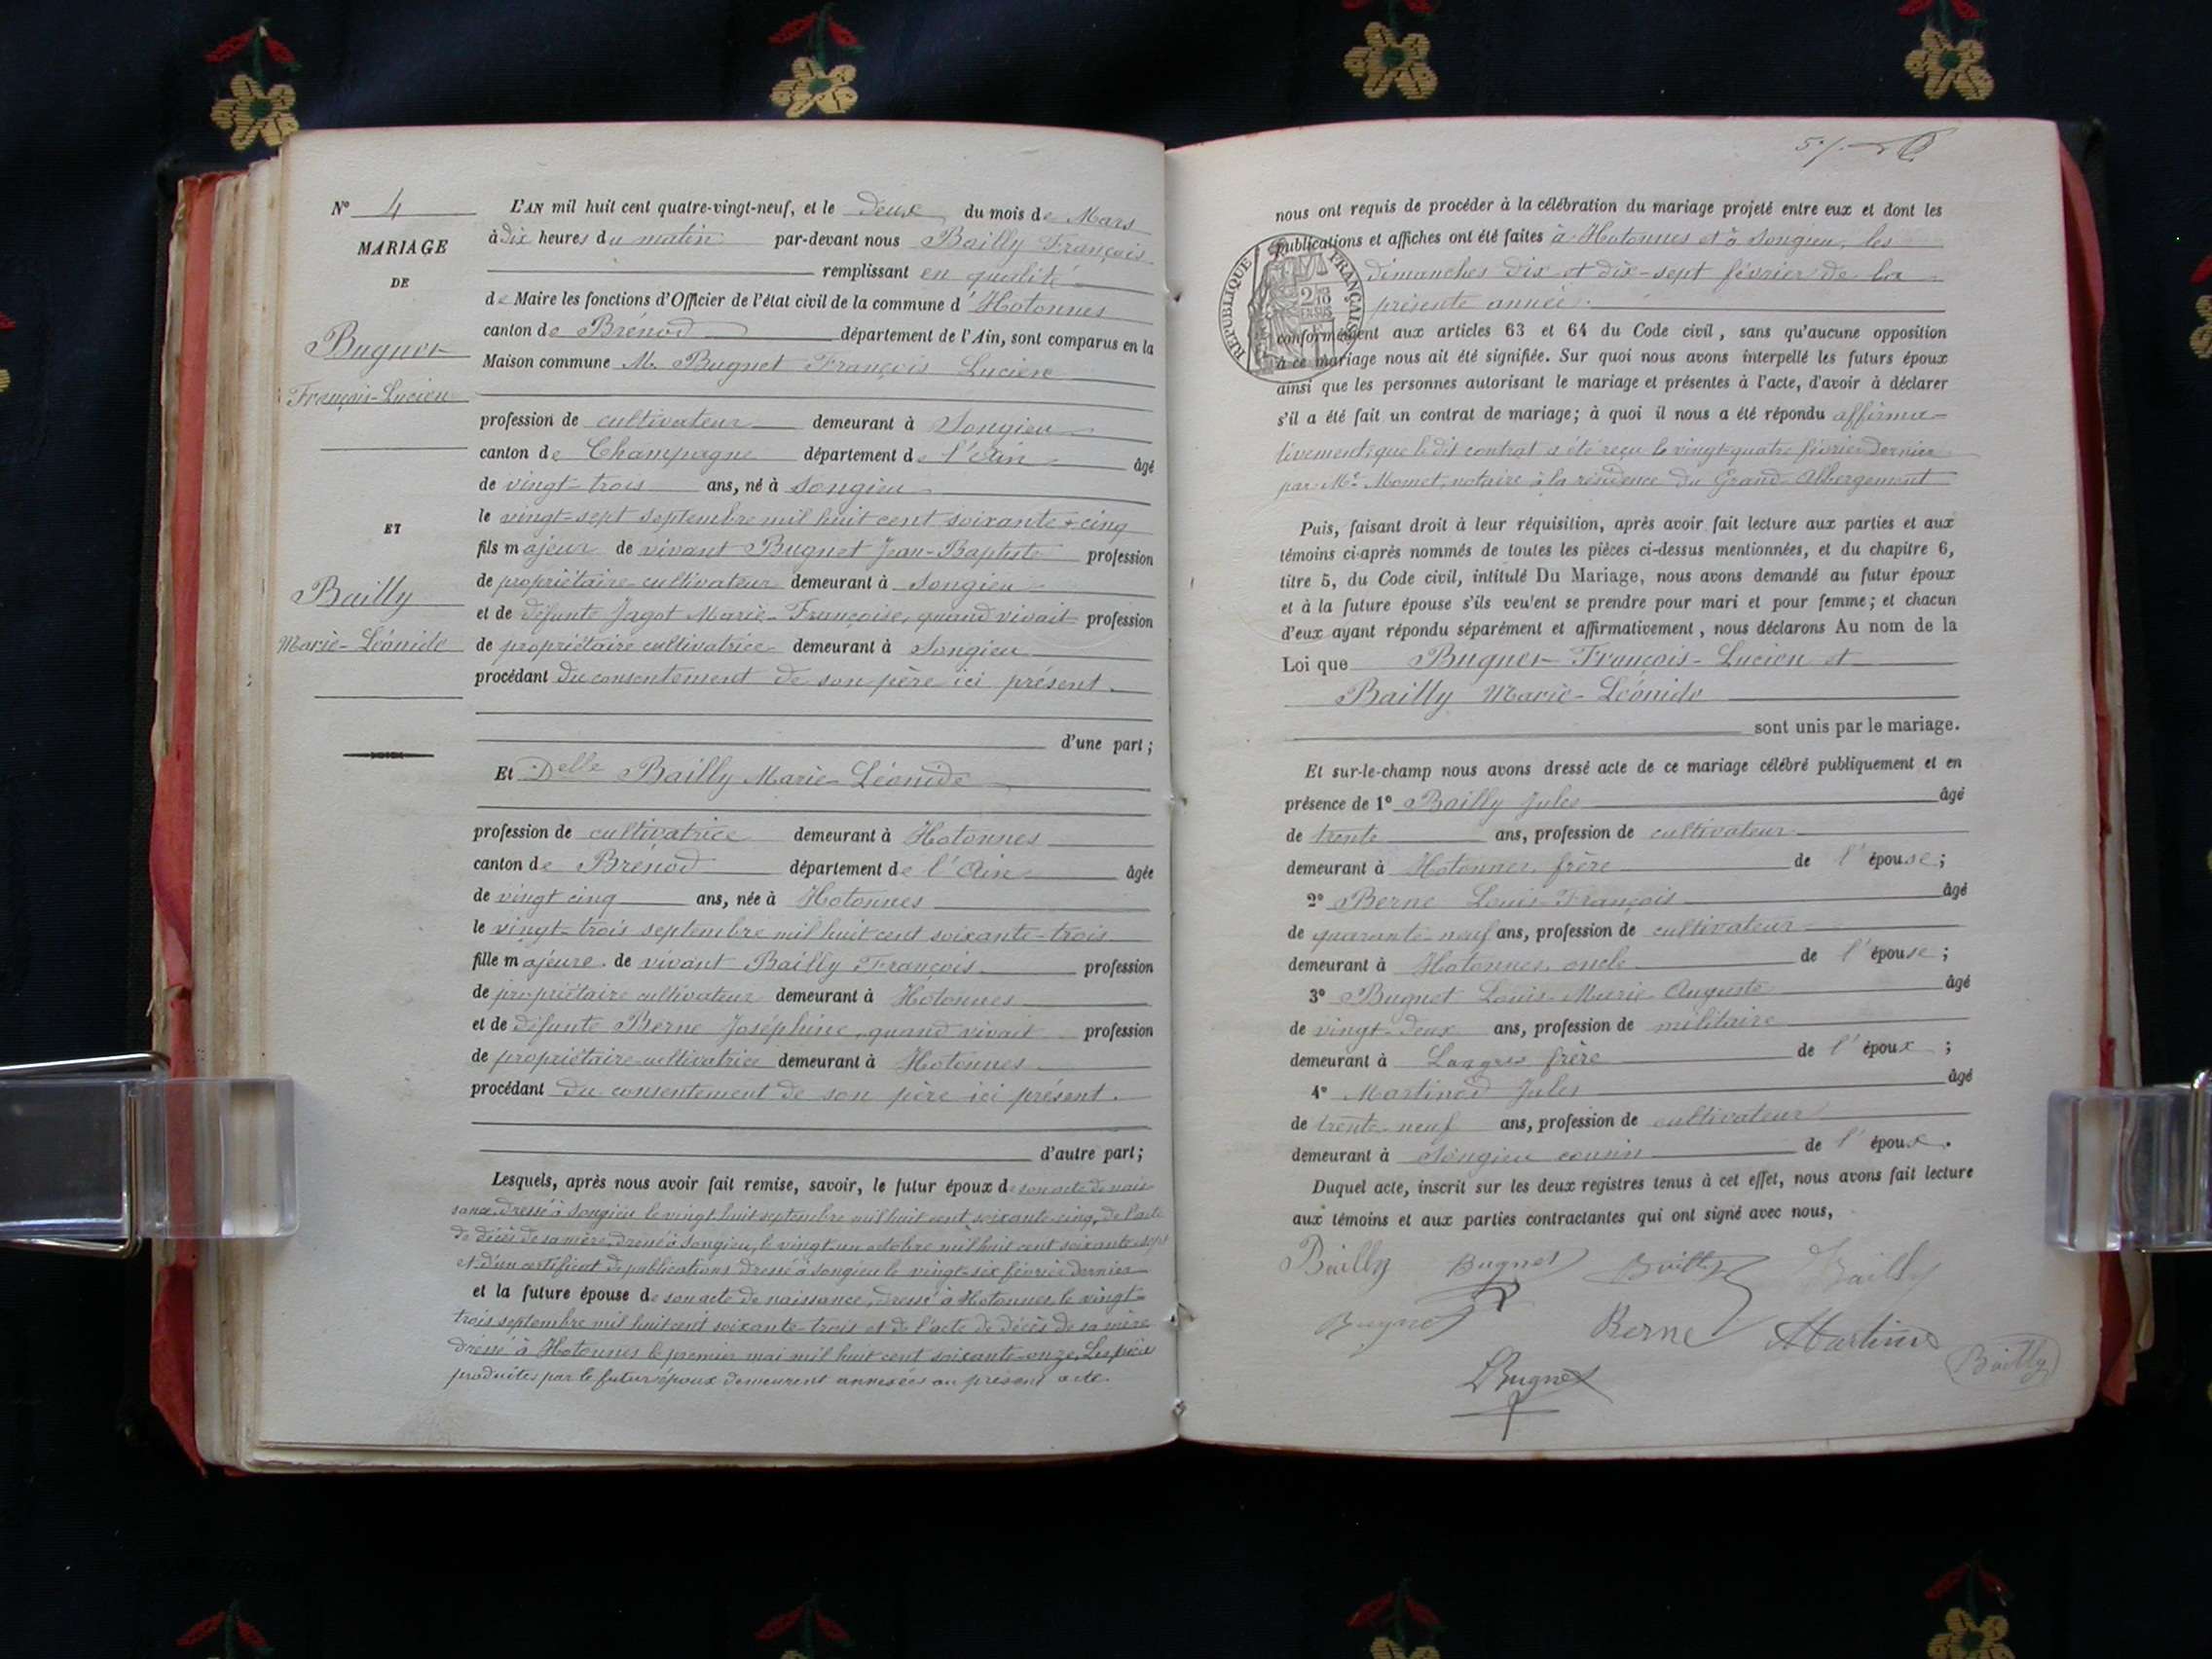 N° 4
MARIAGE
DE
Bugnet
François-Lucien
ET
Bailly
Marie-Léonide
L'AN mil huit cent quatre-vingt-neuf, et le deux du mois de Mars
à dix heures du matin par-devant nous Bailly François
remplissant en qualité
de Maire les fonctions d'Officier de l'état civil de la commune d'Hotonnes
canton de Brénod département de l'Ain, sont comparus en la
Maison commune M. Bugnet François Lucien
profession de cultivateur demeurant à Songieu
canton de Champagne département de l'Ain âgé
de vingt-trois ans, né à Songieu
le vingt-sept septembre mil huit cent soixante-cinq
fils majeur de vivant Bugnet Jean-Baptiste profession
de propriétaire-cultivateur demeurant à Songieu
et de défunte Jagot Marie-Françoise, quand vivait profession
de propriétaire cultivatrice demeurant à Songieu
procédant du consentement de son père ici présent.
d'une part;
Et Delle Bailly Marie-Léonide
profession de cultivatrice demeurant à Hotonnes
canton de Brénod département de l'Ain âgée
de vingt cinq ans, née à Hotonnes
le vingt-trois septembre mil huit cent soixante-trois
fille majeure de vivant Bailly François profession
de propriétaire cultivateur demeurant à Hotonnes
et de défunte Berne Joséphine, quand vivait profession
de propriétaire-cultivatrice demeurant à Hotonnes
procédant du consentement de son père ici présent.
d'autre part;
Lesquels, après nous avoir fait remise, savoir, le futur époux de son acte de nais-
sance, dressé à Songieu le vingt-huit septembre mil huit cent soixante-cinq, de l'acte
de décès de sa mère, dressé à Songieu, le vingt-un octobre mil huit cent soixante-sept
et d'un certificat de publications dressé à Songieu le vingt-six février dernier
et la future épouse de son acte de naissance, dressé à Hotonnes, le vingt-
trois septembre mil huit cent soixante-trois et de l'acte de décès de sa mère
dressé à Hotonnes le premier mai mil huit cent soixante-onze. Les pièces
produites par le futur époux demeurent annexées au présent acte.
nous ont requis de procéder à la célébration du mariage projeté entre eux et dont les
publications et affiches ont été faites à Hotonnes et à Songieu, les
dimanches dix et dix-sept février de la
présente année.
RÉPUBLIQUE FRANÇAISE
conformément aux articles 63 et 64 du Code civil, sans qu'aucune opposition
à ce mariage nous ait été signifiée. Sur quoi nous avons interpellé les futurs époux
ainsi que les personnes autorisant le mariage et présentes à l'acte, d'avoir à déclarer
s'il a été fait un contrat de mariage; à quoi il nous a été répondu affirma-
tivement; que le dit contrat a été reçu le vingt-quatre février dernier
par Me Momet, notaire à la résidence du Grand-Abergement
Puis, faisant droit à leur réquisition, après avoir fait lecture aux parties et aux
témoins ci-après nommés de toutes les pièces ci-dessus mentionnées, et du chapitre 6,
titre 5, du Code civil, intitulé Du Mariage, nous avons demandé au futur époux
et à la future épouse s'ils veulent se prendre pour mari et pour femme; et chacun
d'eux ayant répondu séparément et affirmativement, nous déclarons Au nom de la
Loi que Bugnet François-Lucien et
Bailly Marie-Léonide
sont unis par le mariage.
Et sur-le-champ nous avons dressé acte de ce mariage célébré publiquement et en
présence de 1° Bailly Jules âgé
de trente ans, profession de cultivateur
demeurant à Hotonnes frère de l'épouse;
2° Berne Louis François âgé
de quarante-neuf ans, profession de cultivateur
demeurant à Hotonnes, oncle de l'épouse;
3° Bugnet Louis-Marie Auguste âgé
de vingt-deux ans, profession de militaire
demeurant à Langres frère de l'époux;
4° Martinod Jules âgé
de trente-neuf ans, profession de cultivateur
demeurant à Songieu cousin de l'époux.
Duquel acte, inscrit sur les deux registres tenus à cet effet, nous avons fait lecture
aux témoins et aux parties contractantes qui ont signé avec nous,
Bailly Bugnet Bailly Bailly
Bugnet Berne Martinod
Bailly
Bugnet